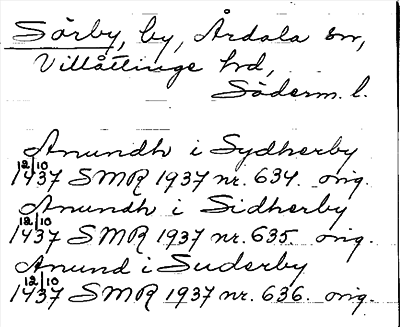 Sörby, by, Årdala sn,
Villåttinge hd,
Söderm. l.
Anundh i Sydherby
12/10 1437 SMR 1937 nr. 634. orig.
Anundh i Sidherby
12/10 1437 SMR 1937 nr. 635. orig.
Anund i Suderby
12/10 1437 SMR 1937 nr. 636. orig.